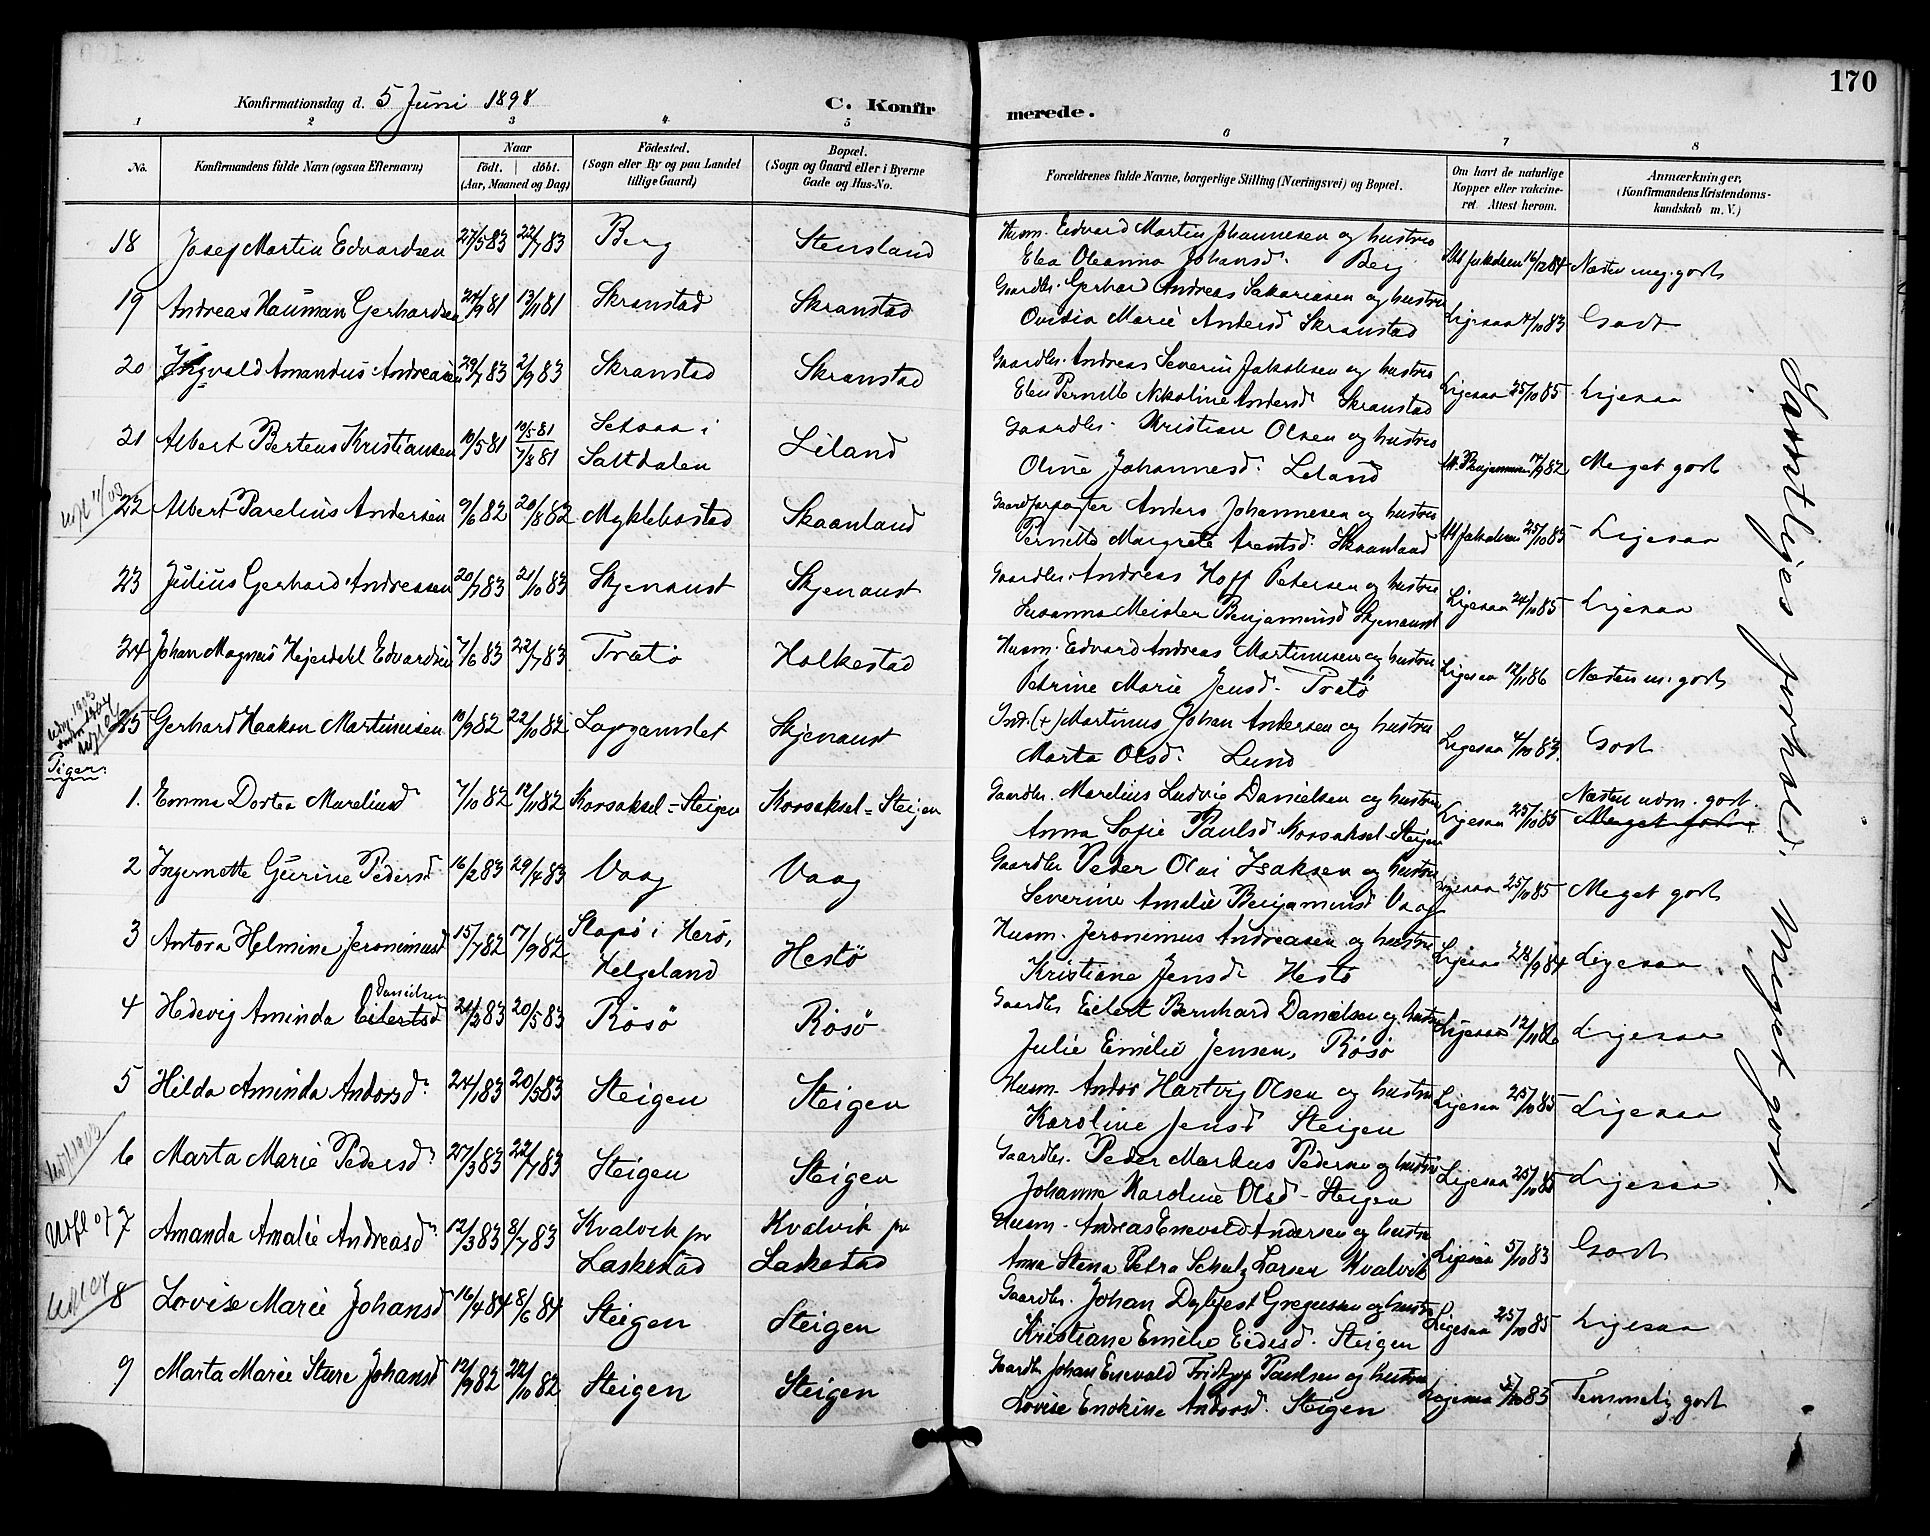 170
Konfirmationsdag d. 5 Juni 1898 C. Konfirmerede.
1 2 3 4 5 6 7 8
No. Konfirmandens fulde Navn (ogsaa Efternavn) Naar født. døbt. (Aar, Maaned og Dag) Fødested. (Sogn eller By og paa Landet tillige Gaard) Bopæl. (Sogn og Gaard eller i Byerne Gade og Hus-No. Forældrenes fulde Navne, borgerlige Stilling (Næringsvei) og Bopæl. Om havt de naturlige Kopper eller vakcineret. Attest herom. Anmærkninger, (Konfirmandens Kristendomskundskab m. V.)
18 Josef Martin Edvardsen 27/5 83 22/7 83 Berg Stensland Husm. Edvard Martin Johannesen og hustru
Elea Oleanna Johansd. Berg 16/12 84 Næsten meg. godt
19 Andreas Hauman Gerhardsen 24/9 81 13/11 81 Skranstad Skranstad Gaardbr. Gerhard Andreas Sakariasen og hustru
Ovidia Marie Andersd Skranstad Ligesaa 4/10 83 Godt
20 Ingvald Amandus Andreasen 29/7 83 2/9 83 Skranstad Skranstad Gaardbr. Andreas Severin Jakobsen og hustru
Elen Pernille Nikoline Andersd Skranstad Ligesaa 25/10 85 Ligesaa
21 Albert Berteus Kristiansen 10/5 81 10/5 81 7/8 81 Setsaa i Saltdalen Leland Gaardbr. Kristian Olsen og hustru
Oline Johannesd. Leland M. Benjaminsen 17/9 82 Meget godt
22 Albert Parelius Andersen 9/6 82 20/8 82 Myklebostad Skaanland Gaardforpagter Anders Johannesen og hustru
Pernille Margrete Arentsd. Skaanland 25/10 85 Ligesaa
23 Julius Gerhard Andreasen 20/7 83 21/10 83 Skjenaust Skjenaust Gaardbr. Andreas Hoff Petersen og hustru
Susanna Meisler Benjaminsd Skjenaust Ligesaa 24/10 85 Ligesaa
24 Johan Magnus Hejerdahl Edvardsen 7/6 83 22/7 83 Tratø Holkestad Husm. Edvard Andreas Martinusen og hustru
Petrine Marie Jensd. Tratø Ligesaa 12/11 86 Næsten m. godt
25 Gerhard Haakon Martinusen 10/9 82 22/10 82 Lapgamslet Skjenaust Ind. (+) Martinus Johan Andersen og hustru
Marta Olsd. Lund Ligesaa 4/10 83 Godt
Piger:
1. Emma Dortea Mareliusd 7/10 82 12/11 82 Korsaksel-Steigen Korsaksel-Steigen Gaardbr. Marelius Ludvig Danielsen og hustru
Anna Sofie Paulsd Korsaksel Steigen Ligesaa 25/10 85 Næsten udm. godt. Meget godt.
2 Ingernette Gurine Pedersd 16/2 83 29/4 83 Vaag Vaag Gaardbr Peder Olai Isaksen og hustru
Severine Amalie Benjaminsd Vaag Ligesaa 25/10 85 Meget godt
3 Antora Helmine Jeronimusd 15/7 82 17/9 82 Slapø i Herø, Helgeland Hestø Husm. Jeronimus Andreasen og hustru
Kristiane Jensd. Hestø Ligesaa 28/9 84 Ligesaa
4 Hedevig Aminda Eilertsd Danielsen 21/3 83 20/5 83 Røsø Røsø Gaardbr Eilert Bernhard Danielsen og hustru
Julie Emilie Jensen, Røsø Ligesaa 12/11 86 Ligesaa
5 Hilda Aminda Andorsd. 24/1 83 20/5 83 Steigen Steigen Husm. Andor Hartvig Olsen og hustru
Karoline Jensd Steigen Ligesaa 25/10 85 Ligesaa
6 Marta Marie Pedersd. 27/3 83 22/7 83 Steigen Steigen Gaardbr. Peder Markus Pedersen og hustru
Johanna Karoline Olsd - Steigen Ligesaa 25/10 85 Ligesaa
7 Amanda Amalie Andreasd. 12/3 83 8/7 83 Kvalvik pr Laskestad Kvalvik pr Laskestad Husm. Andreas Enevold Andersen og hustru
Anna Stena Petra Schulz Larsen Kvalvik Ligesaa 5/10 83 Godt
8 Lovise Marie Johansd 16/4 84 8/6 84 Steigen Steigen Gaardbr. Johan Gregusen og hustru
Kristiane Emilie Eidesd. Steigen Ligesaa 25/10 85 Ligesaa
9 Marta Marie Sture Johansd 12/9 82 22/10 82 Steigen Steigen Gaardbr Johan Enevald Paulsen og hustru
Lovise Enokine Andorsd. Steigen Ligesaa 5/10 83 Temmelig godt
Samtliges forhold: Meget godt.